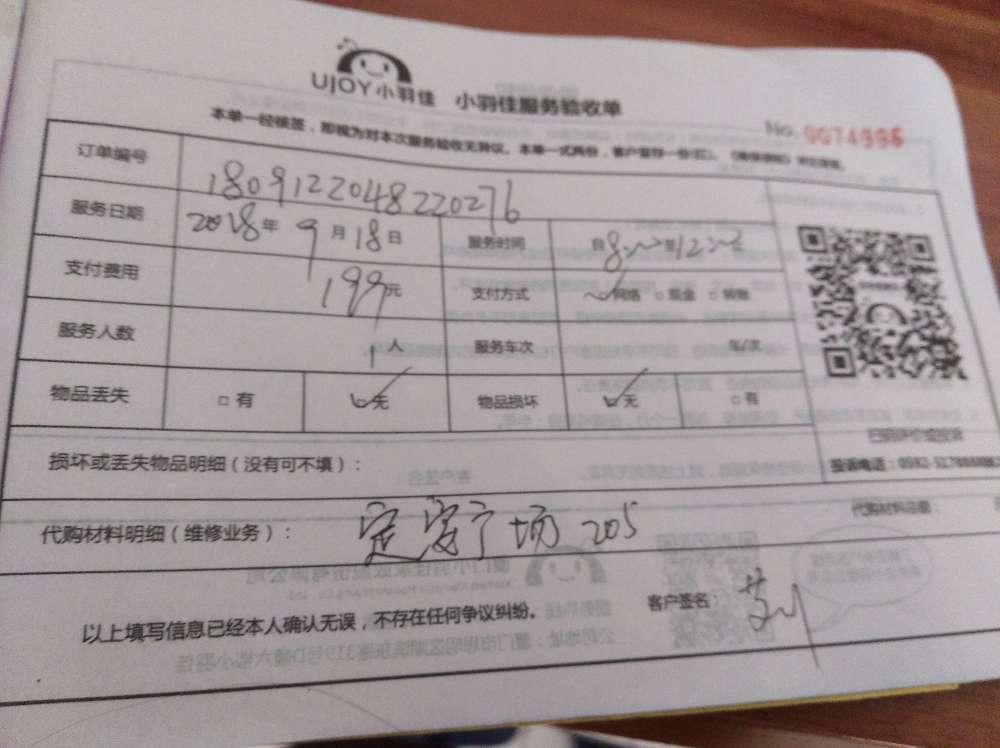 UJOY小羽佳 小羽佳服务验收单
No. 0074996
本单一经核签，即视为对本次服务验收无异议。本单一式两份，客户留存一份
订单编号 1809122048220276
服务日期 2018年9月18日 服务时间 自8 至12
支付费用 199元 支付方式 网络 □现金 □转账
服务人数 1人 服务车次 车/次
物品丢失 □有 无 物品损坏 无 □有
扫码评价或投诉
损坏或丢失物品明细（没有可不填）：
投诉电话：0592-
代购材料明细（维修业务）： 定安广场 205
代购材料品牌：
以上填写信息已经本人确认无误，不存在任何争议纠纷。 客户签名：